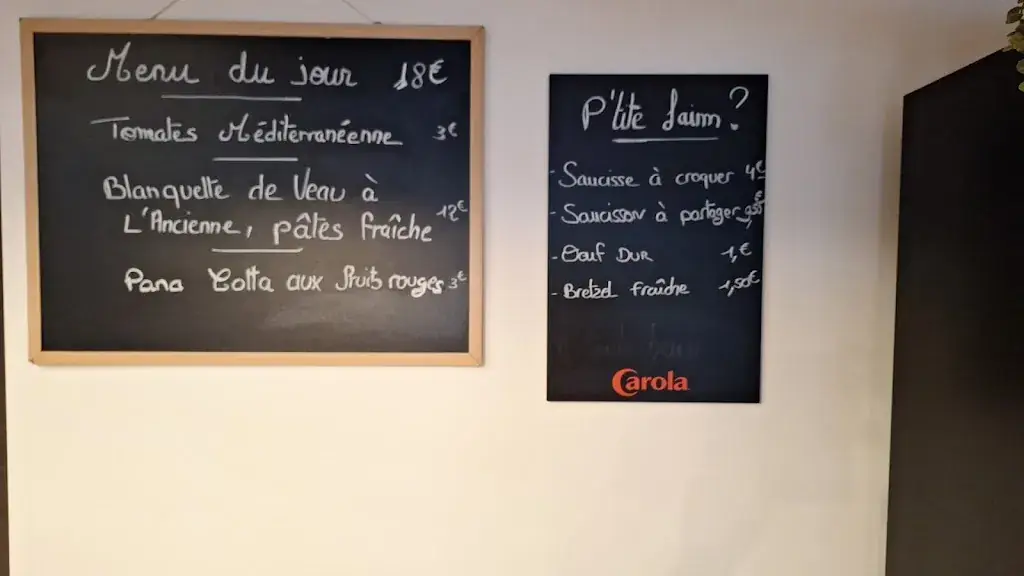 Menu du jour 18€
Tomates Méditerranéenne 3€
Blanquette de Veau à
L'Ancienne, pâtes fraîche 12€
Pana Cotta aux fruits rouges 3€
P'tite faim?
- Saucisse à croquer 4€
- Saucisson à partager
- Oeuf DUR 1€
- Bretzel fraîche 1,50€
Carola